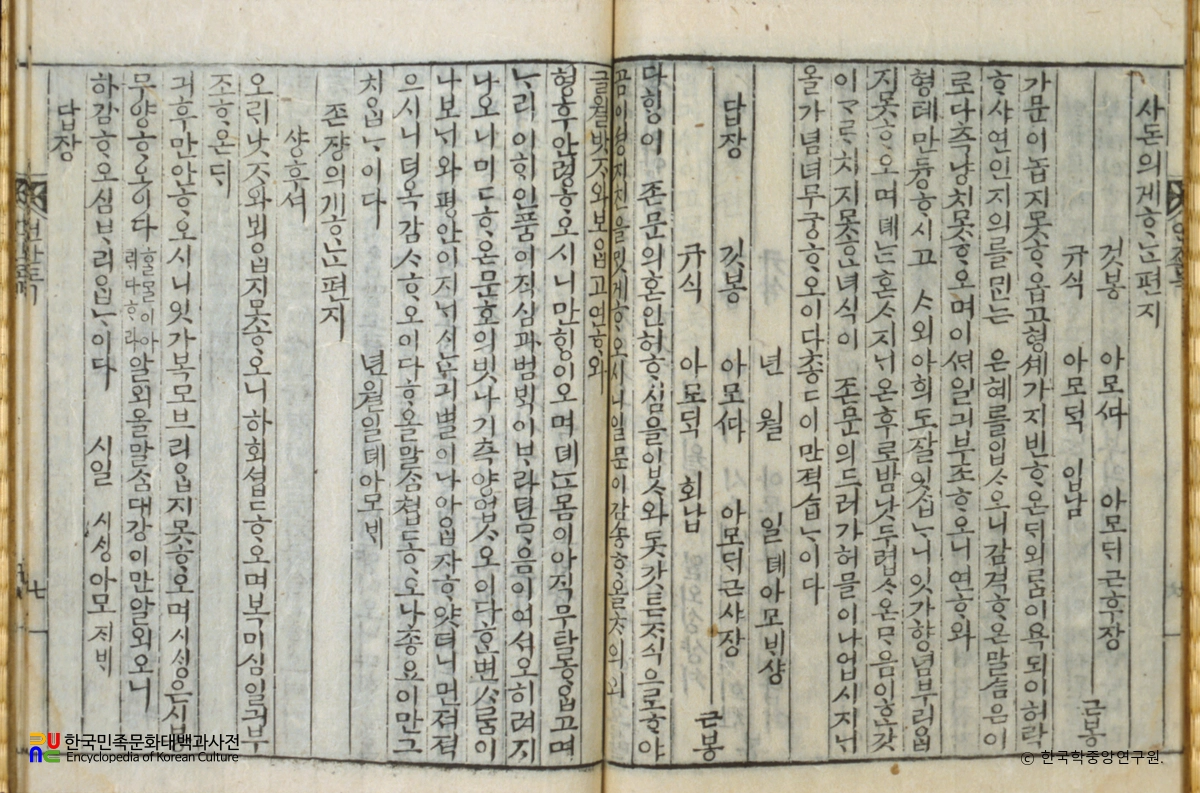 사돈의게ᄒᆞᄂᆞᆫ편지
것봉 아모ᄯᅡ 아모ᄃᆡ근후쟝 근봉
규식 아모ᄃᆡᆨ 입납
가문이놉지못ᄒᆞ옵고형셰가지빈ᄒᆞ온ᄃᆡ외롬이욕되이허락
ᄒᆞ샤연인지의를ᄆᆡᆺ는 은혜를입ᄉᆞ오니감격ᄒᆞ온말ᄉᆞᆷ은이
로다측냥치못ᄒᆞ오며이ᄯᆡ일긔부조ᄒᆞ오니연ᄒᆞ와
형톄만듕ᄒᆞ시고 ᄉᆞ외아희도잘잇ᄉᆞᆸᄂᆞ니잇가향념부리ᄋᆞᆸ
지못ᄒᆞ오며 뎨ᄂᆞᆫ혼ᄉᆞ지ᄂᆡ온후로밤낫두렵ᄉᆞ온ᄆᆞ음이ᄒᆞᆫ갓
이ᄀᆞᄅᆞ치지못ᄒᆞᆫ녀식이 존문의드러가허믈이나업시지ᄂᆡ
올가념녀무궁ᄒᆞ오이다총총이만젹ᄉᆞᆸᄂᆞ이다
년 월 일뎨아모ᄇᆡ샹
답장 것봉 아모ᄯᅡ 아모ᄃᆡ근샤쟝 근봉
규식 아모ᄃᆡᆨ 회납
다ᄒᆡᆼ이 존문의혼인허ᄒᆞ심을입ᄉᆞ와돗갓ᄐᆞᆫᄌᆞ식으로ᄒᆞ야
곰이셩지친을ᄆᆡᆺ게ᄒᆞ오시니일문이감송ᄒᆞ올ᄎᆞ의외
글월밧ᄌᆞ와보ᄋᆞᆸ고인ᄒᆞ와
형후안령ᄒᆞ오시니만ᄒᆡᆼ이오며뎨ᄂᆞᆫ몸이아직무탈ᄒᆞᄋᆞᆸ고며
ᄂᆞ리 이ᄒᆡᆼ인품이직심과범ᄇᆡᆨ이ᄇᆞ라던ᄆᆞᄋᆞᆷ이여셔오히려지
나오니미드ᄒᆞ온문호의빗나기측냥업ᄉᆞ오이다ᄒᆞᆫ번ᄉᆞᄅᆞᆷ이
나보ᄂᆡ와평안이지ᄂᆡ신긔별이나아ᄋᆞᆸ자ᄒᆞ얏더니먼져젹
으시니더옥감ᄉᆞᄒᆞ오이다ᄒᆞ올말ᄉᆞᆷ쳡듕ᄒᆞ오나총요이만그
치ᄋᆞᆸᄂᆞ이다 년월일뎨아모ᄇᆡ
존쟝의게ᄒᆞᄂᆞᆫ편지
샹후셔
오ᄅᆡ낫ᄌᆞ와뵈ᄋᆞᆸ지못ᄒᆞ오니하회셥ᄒᆞ오며복미심일긔부
조ᄒᆞ온ᄃᆡ
긔후만안ᄒᆞ오시니잇가복모브리ᄋᆞᆸ지못ᄒᆞ오며시ᄉᆡᆼ은시ᄇᆡ
무양ᄒᆞ오이다 ᄒᆞᆯ말이아ᄅᆡ다ᄒᆞ라 알외올말ᄉᆞᆷ대강이만알외오니
하감ᄒᆞ오심ᄇᆞ라ᄋᆞᆸᄂᆞ이다 시일 시ᄉᆡᆼ아모ᄌᆡᄇᆡ
답장
七
한국민족문화대백과사전
Encyclopedia of Korean Culture
© 한국학중앙연구원.